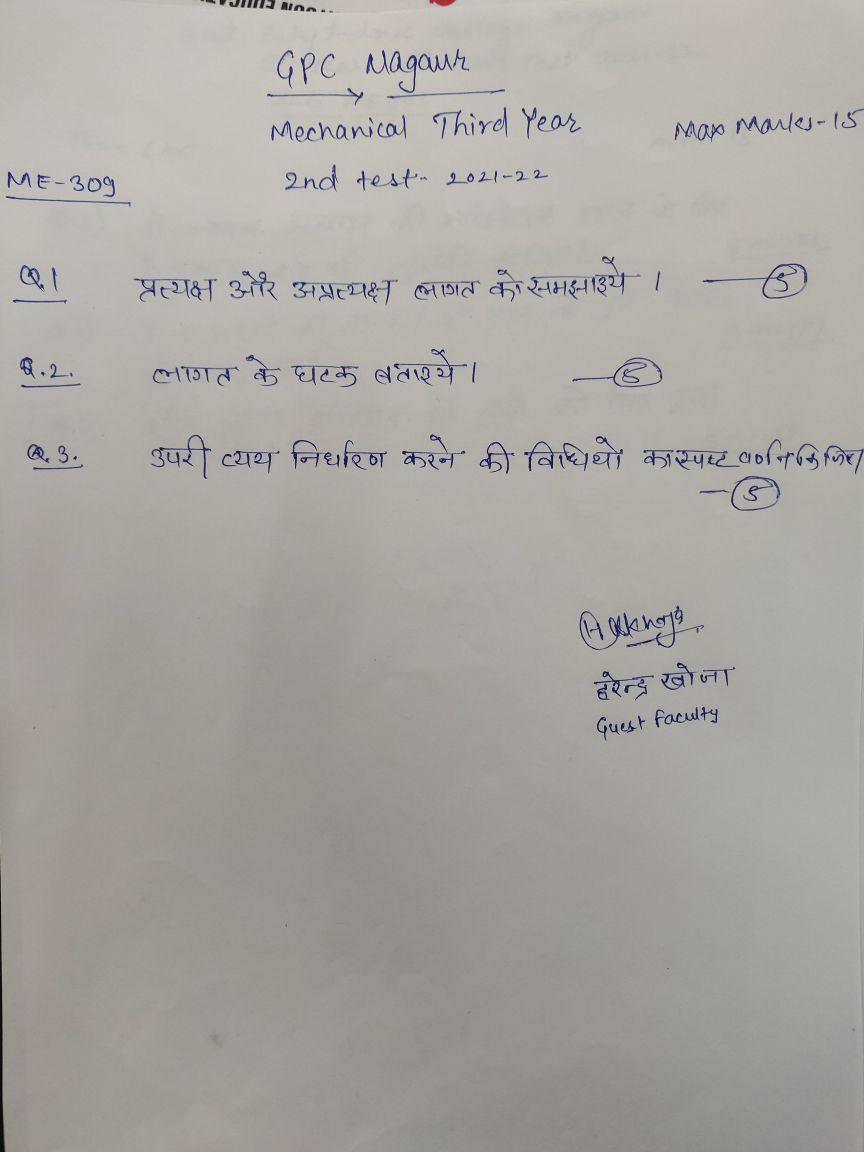 GPC Nagaur
Mechanical Third Year Max Marks-15
ME-309 2nd test- 2021-22
Q.1 प्रत्यक्ष और अप्रत्यक्ष लागत को समझाइये । — 5
Q.2. लागत के घटक बताइये। — 5
Q.3. उपरी व्यय निर्धारण करने की विधियों का स्पष्ट वर्णन किजिए।
— 5
हरेन्द्र खोजा
Guest Faculty